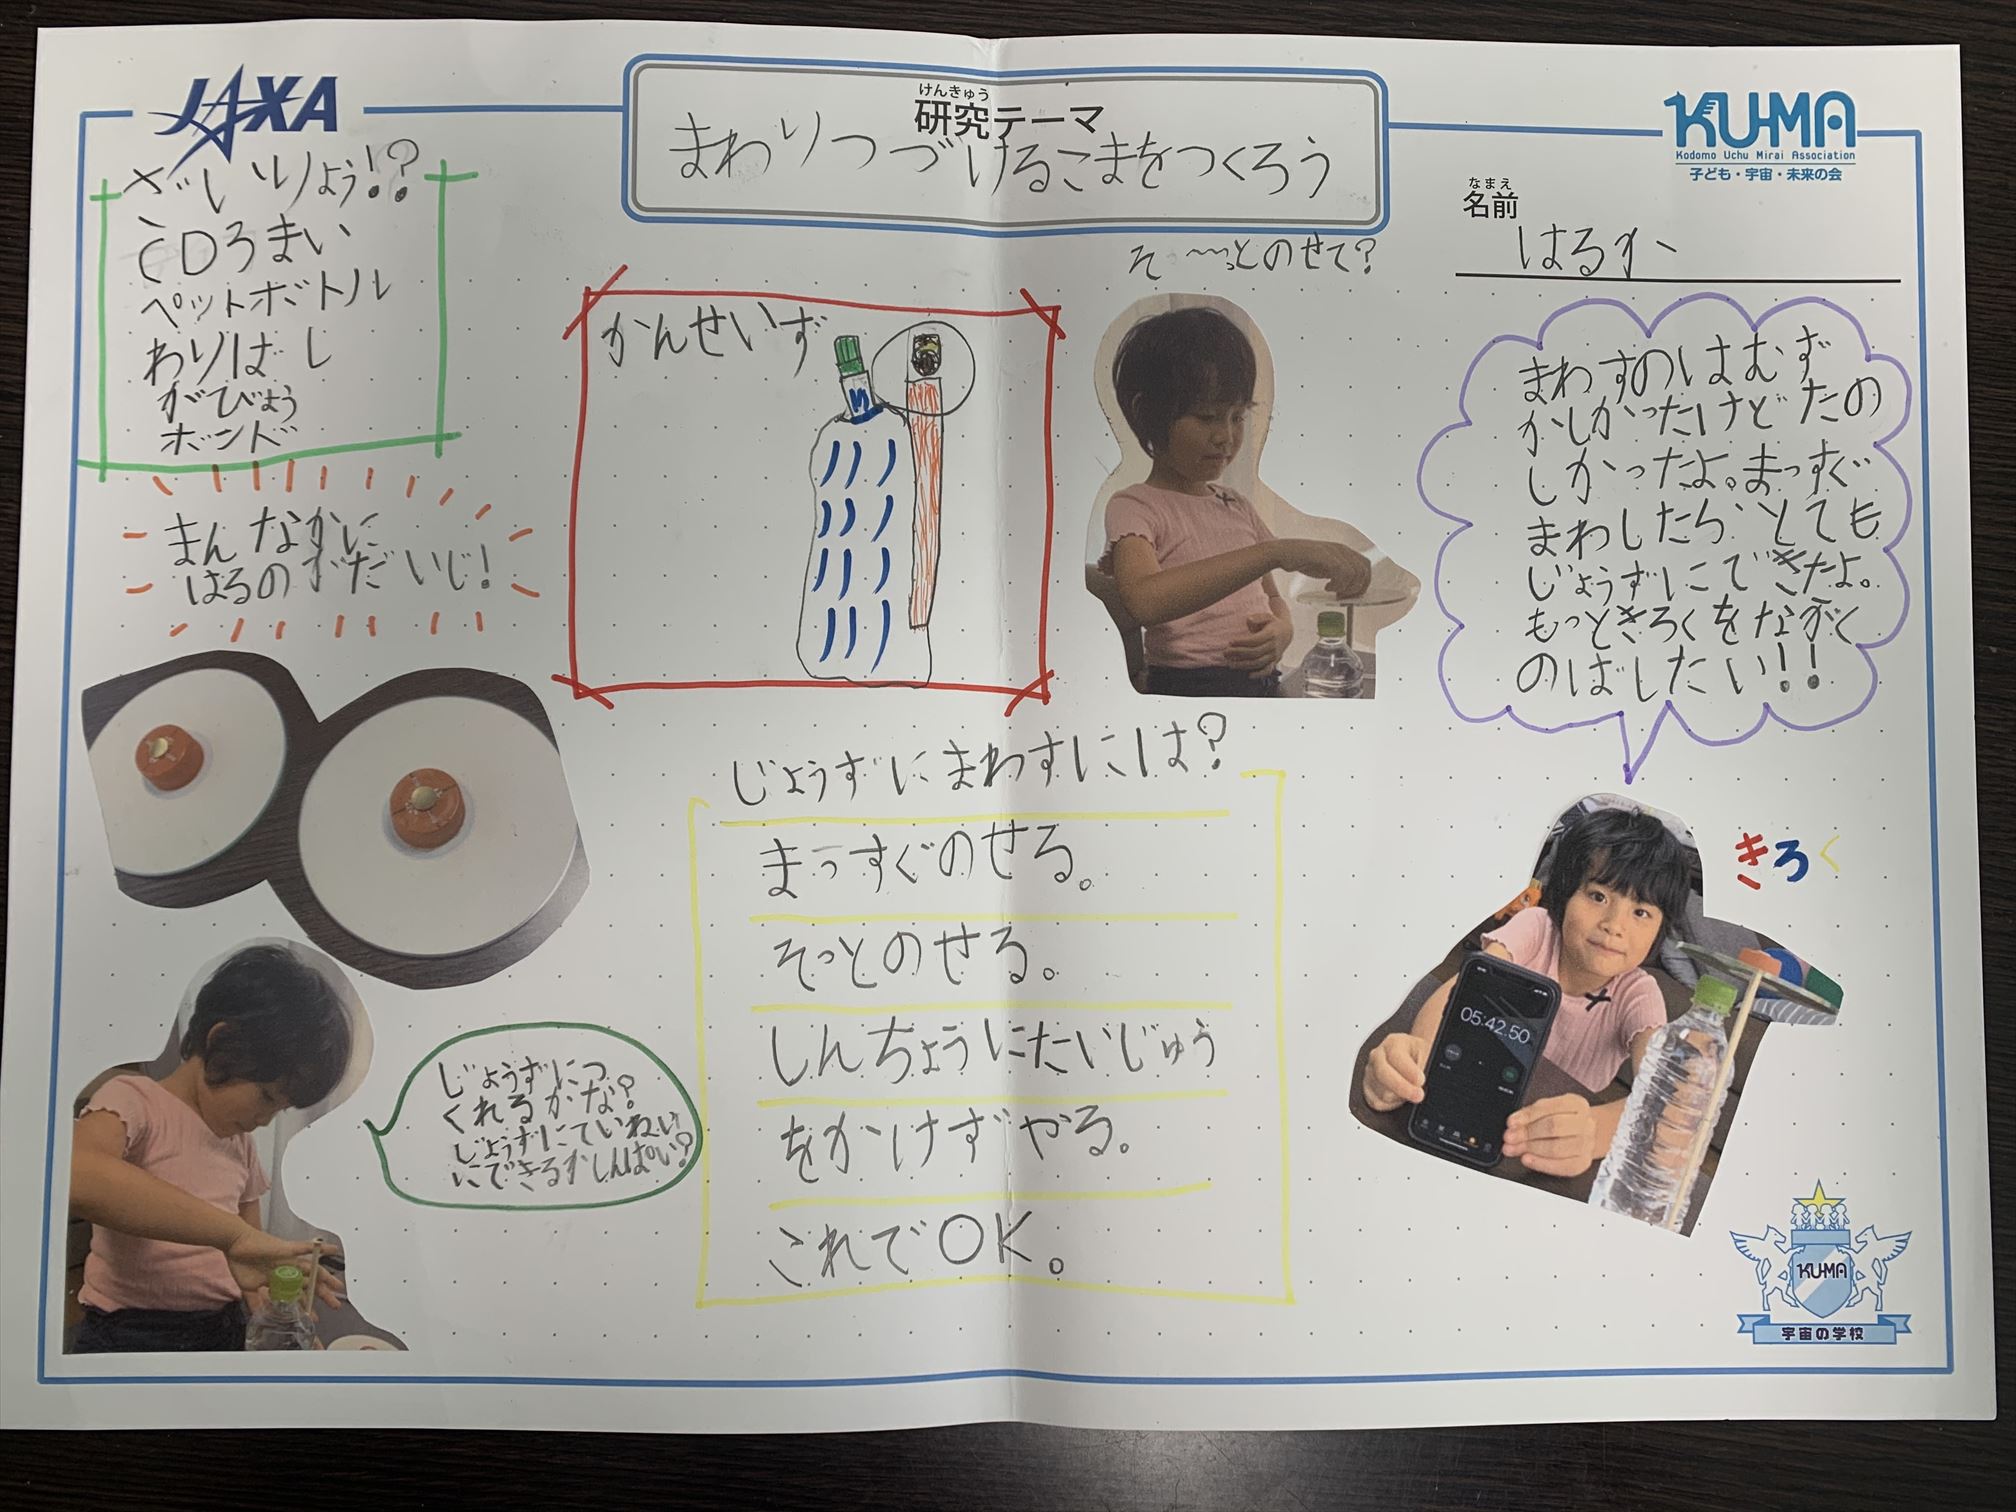 JAXA
けんきゅう
研究テーマ
まわりつづけるこまをつくろう
KU-MA
Kodomo Uchu Mirai Association
子ども・宇宙・未来の会
なまえ
名前
はるか
ざいりょう!?
CDろまい
ペットボトル
わりばし
がびょう
ボンド
まんなかに
はるのがだいじ!
かんせいず
そ〜〜っとのせて?
まわすのはむず
かしかったけどたの
しかったよ。まっすぐ
まわしたらとても
じょうずにできたよ。
もっときろくをながく
のばしたい!!
じょうずにまわすには?
まっすぐのせる。
そっとのせる。
しんちょうにたいじゅう
をかけずやる。
これでOK。
じょうずにつ
くれるかな?
じょうずにていねい
にできるかしんぱい?
きろく
05:42.50
KU-MA
宇宙の学校